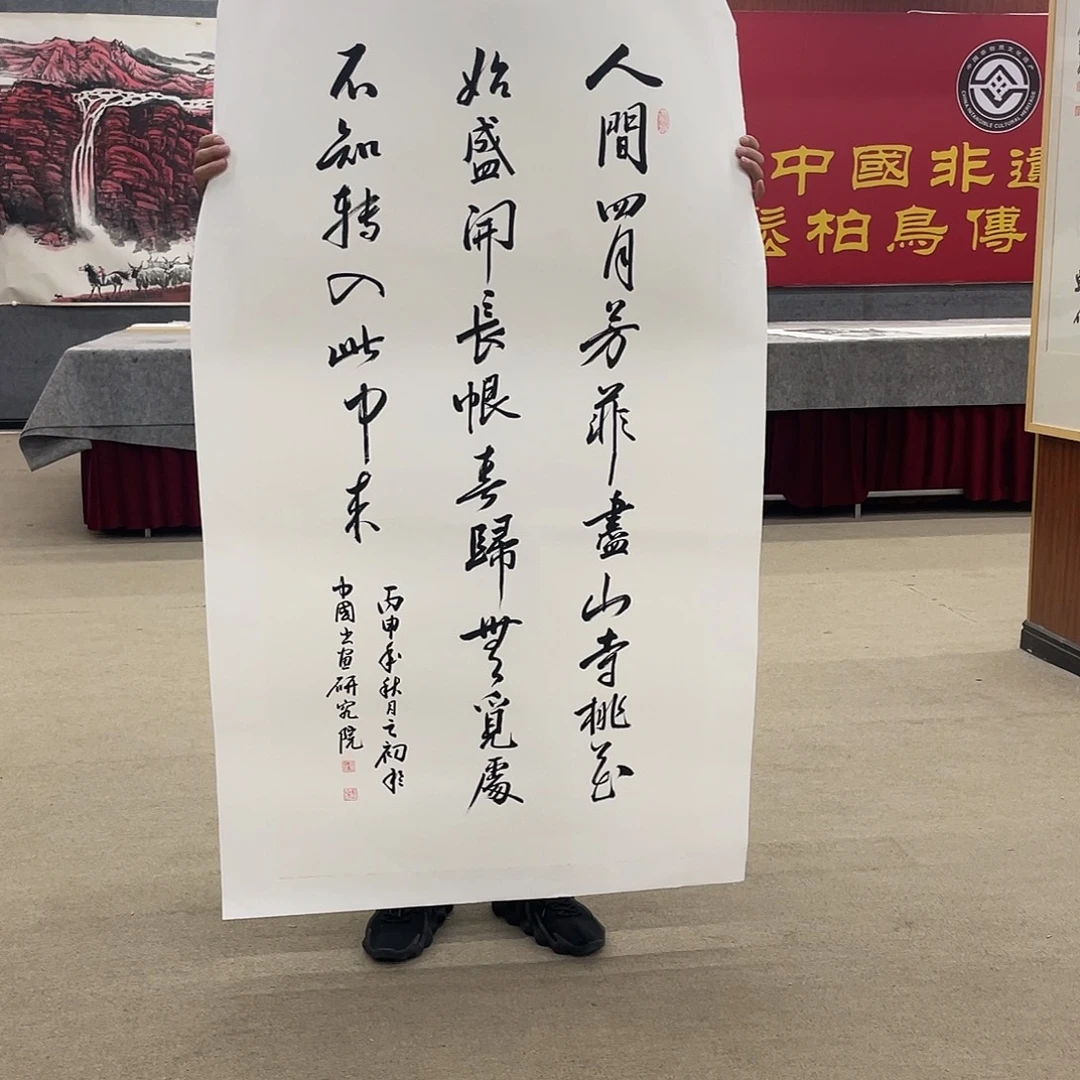 人間四月芳菲盡山寺桃花
始盛開長恨春歸無覓處
不知轉入此中来
丙申年秋月之初於
中國书画研究院
中國非遺
柏鳥傳
中国非物质文化遗产
CHINA INTANGIBLE CULTURAL HERITAGE